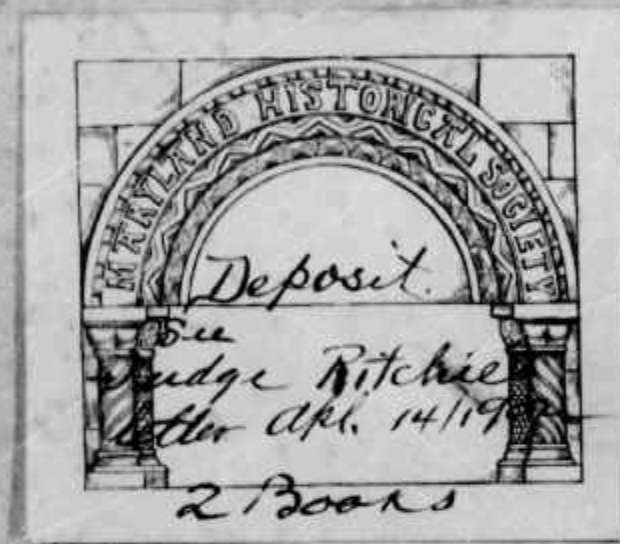 MARYLAND HISTORICAL SOCIETY
Deposit.
See
Judge Ritchie
letter Apl. 14/19
2 Books